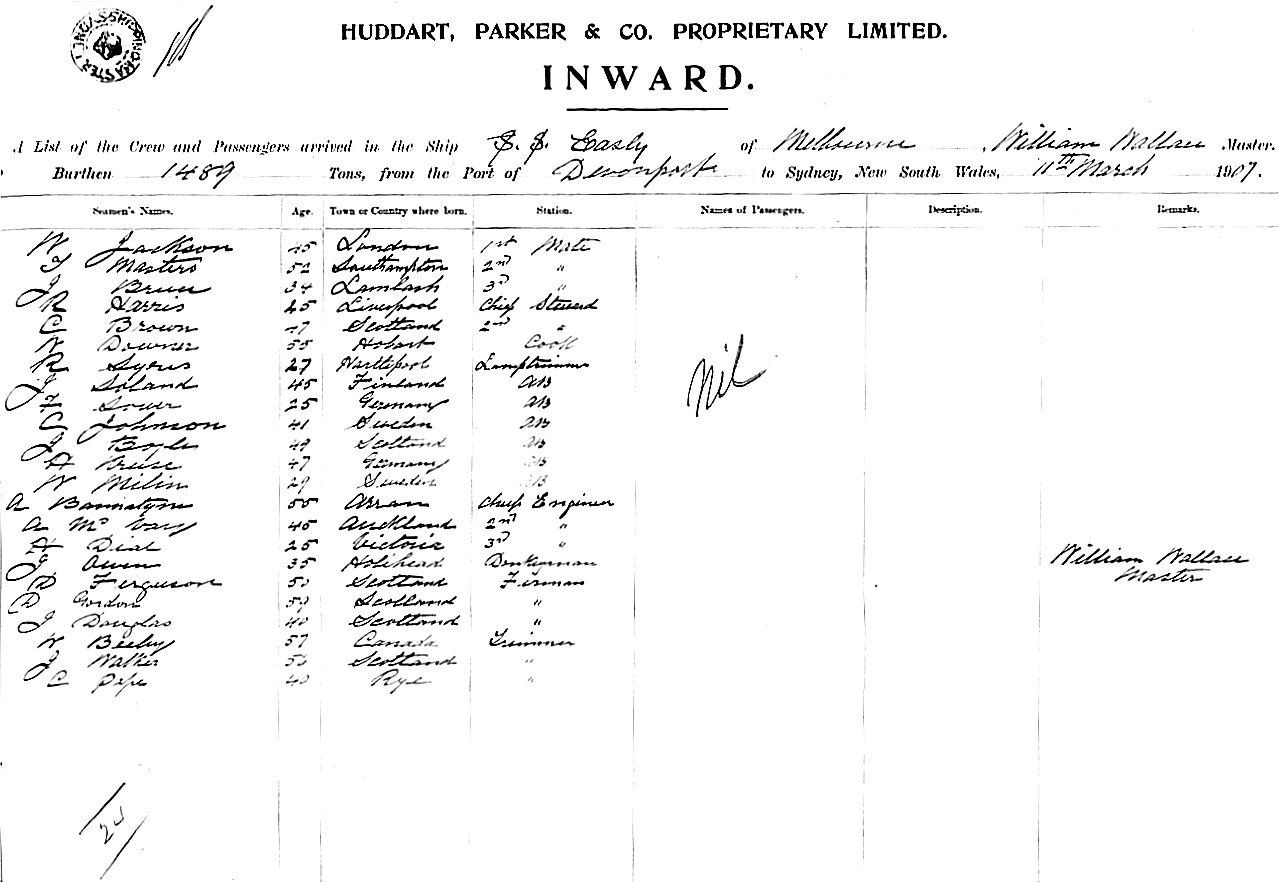 HUDDART, PARKER & CO. PROPRIETARY LIMITED.
INWARD.
A List of the Crew and Passengers arrived in the Ship S. S. Easby of Melbourne, William Wallace Master.
Burthen 1489 Tons, from the Port of Devonport to Sydney, New South Wales, 11TH March 1907.
Seamen's Names. Age. Town or Country where born. Station. Names of Passengers. Description. Remarks.
W Jackson 45 London 1st Mate
Masters 52 Southampton 2nd "
J 34 Lamlash 3rd "
R Harris 25 Liverpool Chief Steward
C Brown 47 Scotland 2nd "
W Downer 55 Hobart Cook
R Syers 27 Hartlepool Lamptrimmer
J Soland 45 Finland AB
F 25 Germany AB
C Johnson 41 Sweden AB
J Boyle 49 Scotland AB
H Kruse 47 Germany AB
W Milin 29 Sweden AB
A Bannatyne 55 Arran Chief Engineer
A Mc Vary 45 Auckland 2nd "
H Dial 25 Victoria 3rd "
J Owen 35 Holihead Donkeyman
D Ferguson 50 Scotland Fireman
D Gordon 59 Scotland "
J Douglas 40 Scotland "
W Beeby 57 Canada Trimmer
J Walker 50 Scotland "
C Pepe 40 Rye "
Nil
William Wallace
Master
24